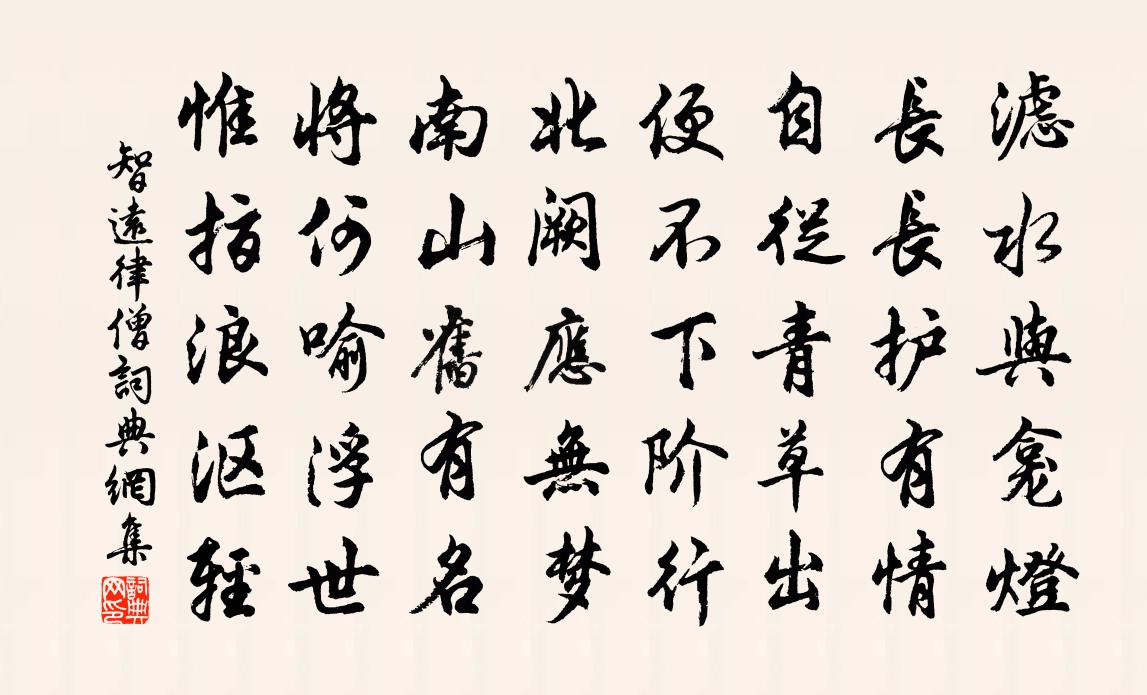 滤水與龛燈
長長护有情
自從青草出
便不下阶行
北阙應無梦
南山舊有名
将何喻浮世
惟指浪沤輕
智遠律僧詞典網集
詞典网印